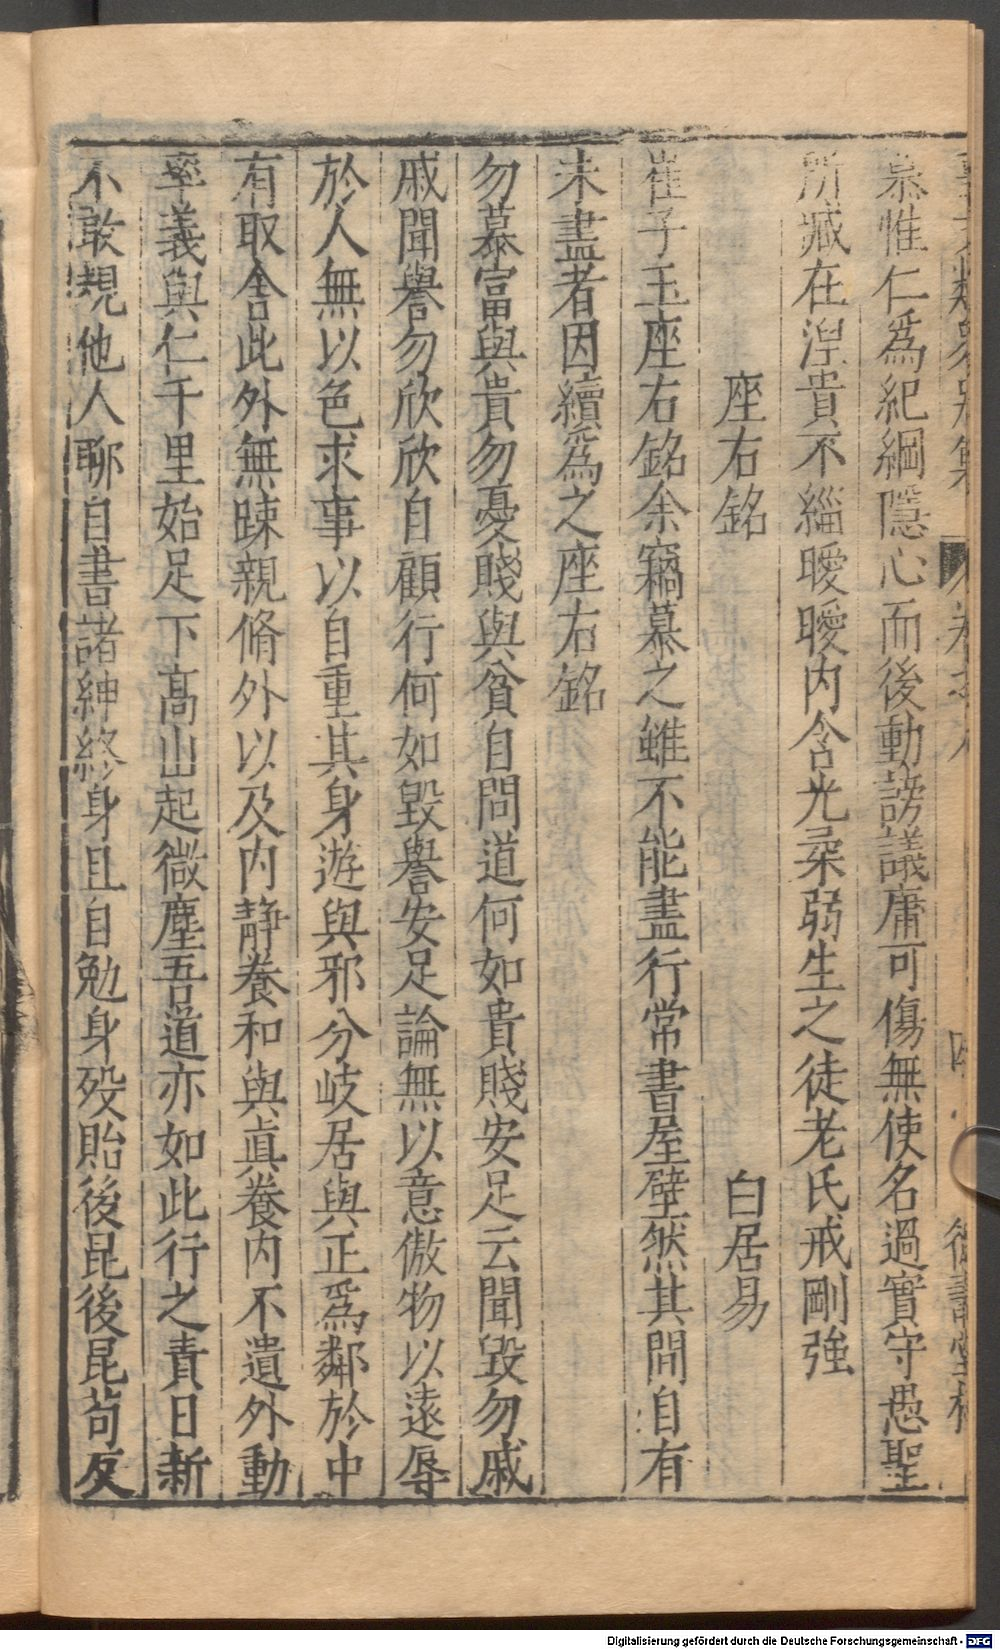 慕惟仁爲紀綱隱心而後動謗議庸可傷無使名過實守愚聖
所臧在涅貴不緇曖曖内含光柔弱生之徒老氏戒剛強
座右銘 白居易
崔子玉座右銘余竊慕之雖不能盡行常書屋壁然其間自有
未盡者因續爲之座右銘
勿慕富與貴勿憂賤與貧自問道何如貴賤安足云聞毀勿戚
戚聞譽勿欣欣自顧行何如毀譽安足論無以意傲物以遠辱
於人無以色求事以自重其身遊與邪分岐居與正爲鄰於中
有取舍此外無踈親脩外以及内靜養和與眞養内不遺外動
率義與仁千里始足下高山起微塵吾道亦如此行之貴日新
不敢規他人聊自書諸紳終身且自勉身歿貽後昆後昆苟反
Digitalisierung gefördert durch die Deutsche Forschungsgemeinschaft - DFG